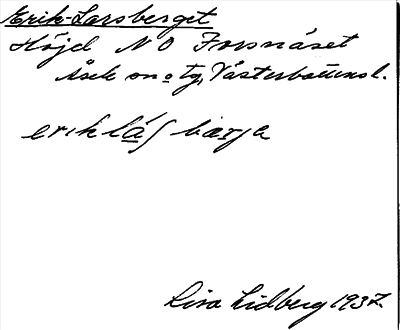 Erik-Larsberget
Höjd NO Forsnäset
Åsele sn o tg, Västerbottens l.
erik láʃ bærja
Lisa Lidberg 1937.